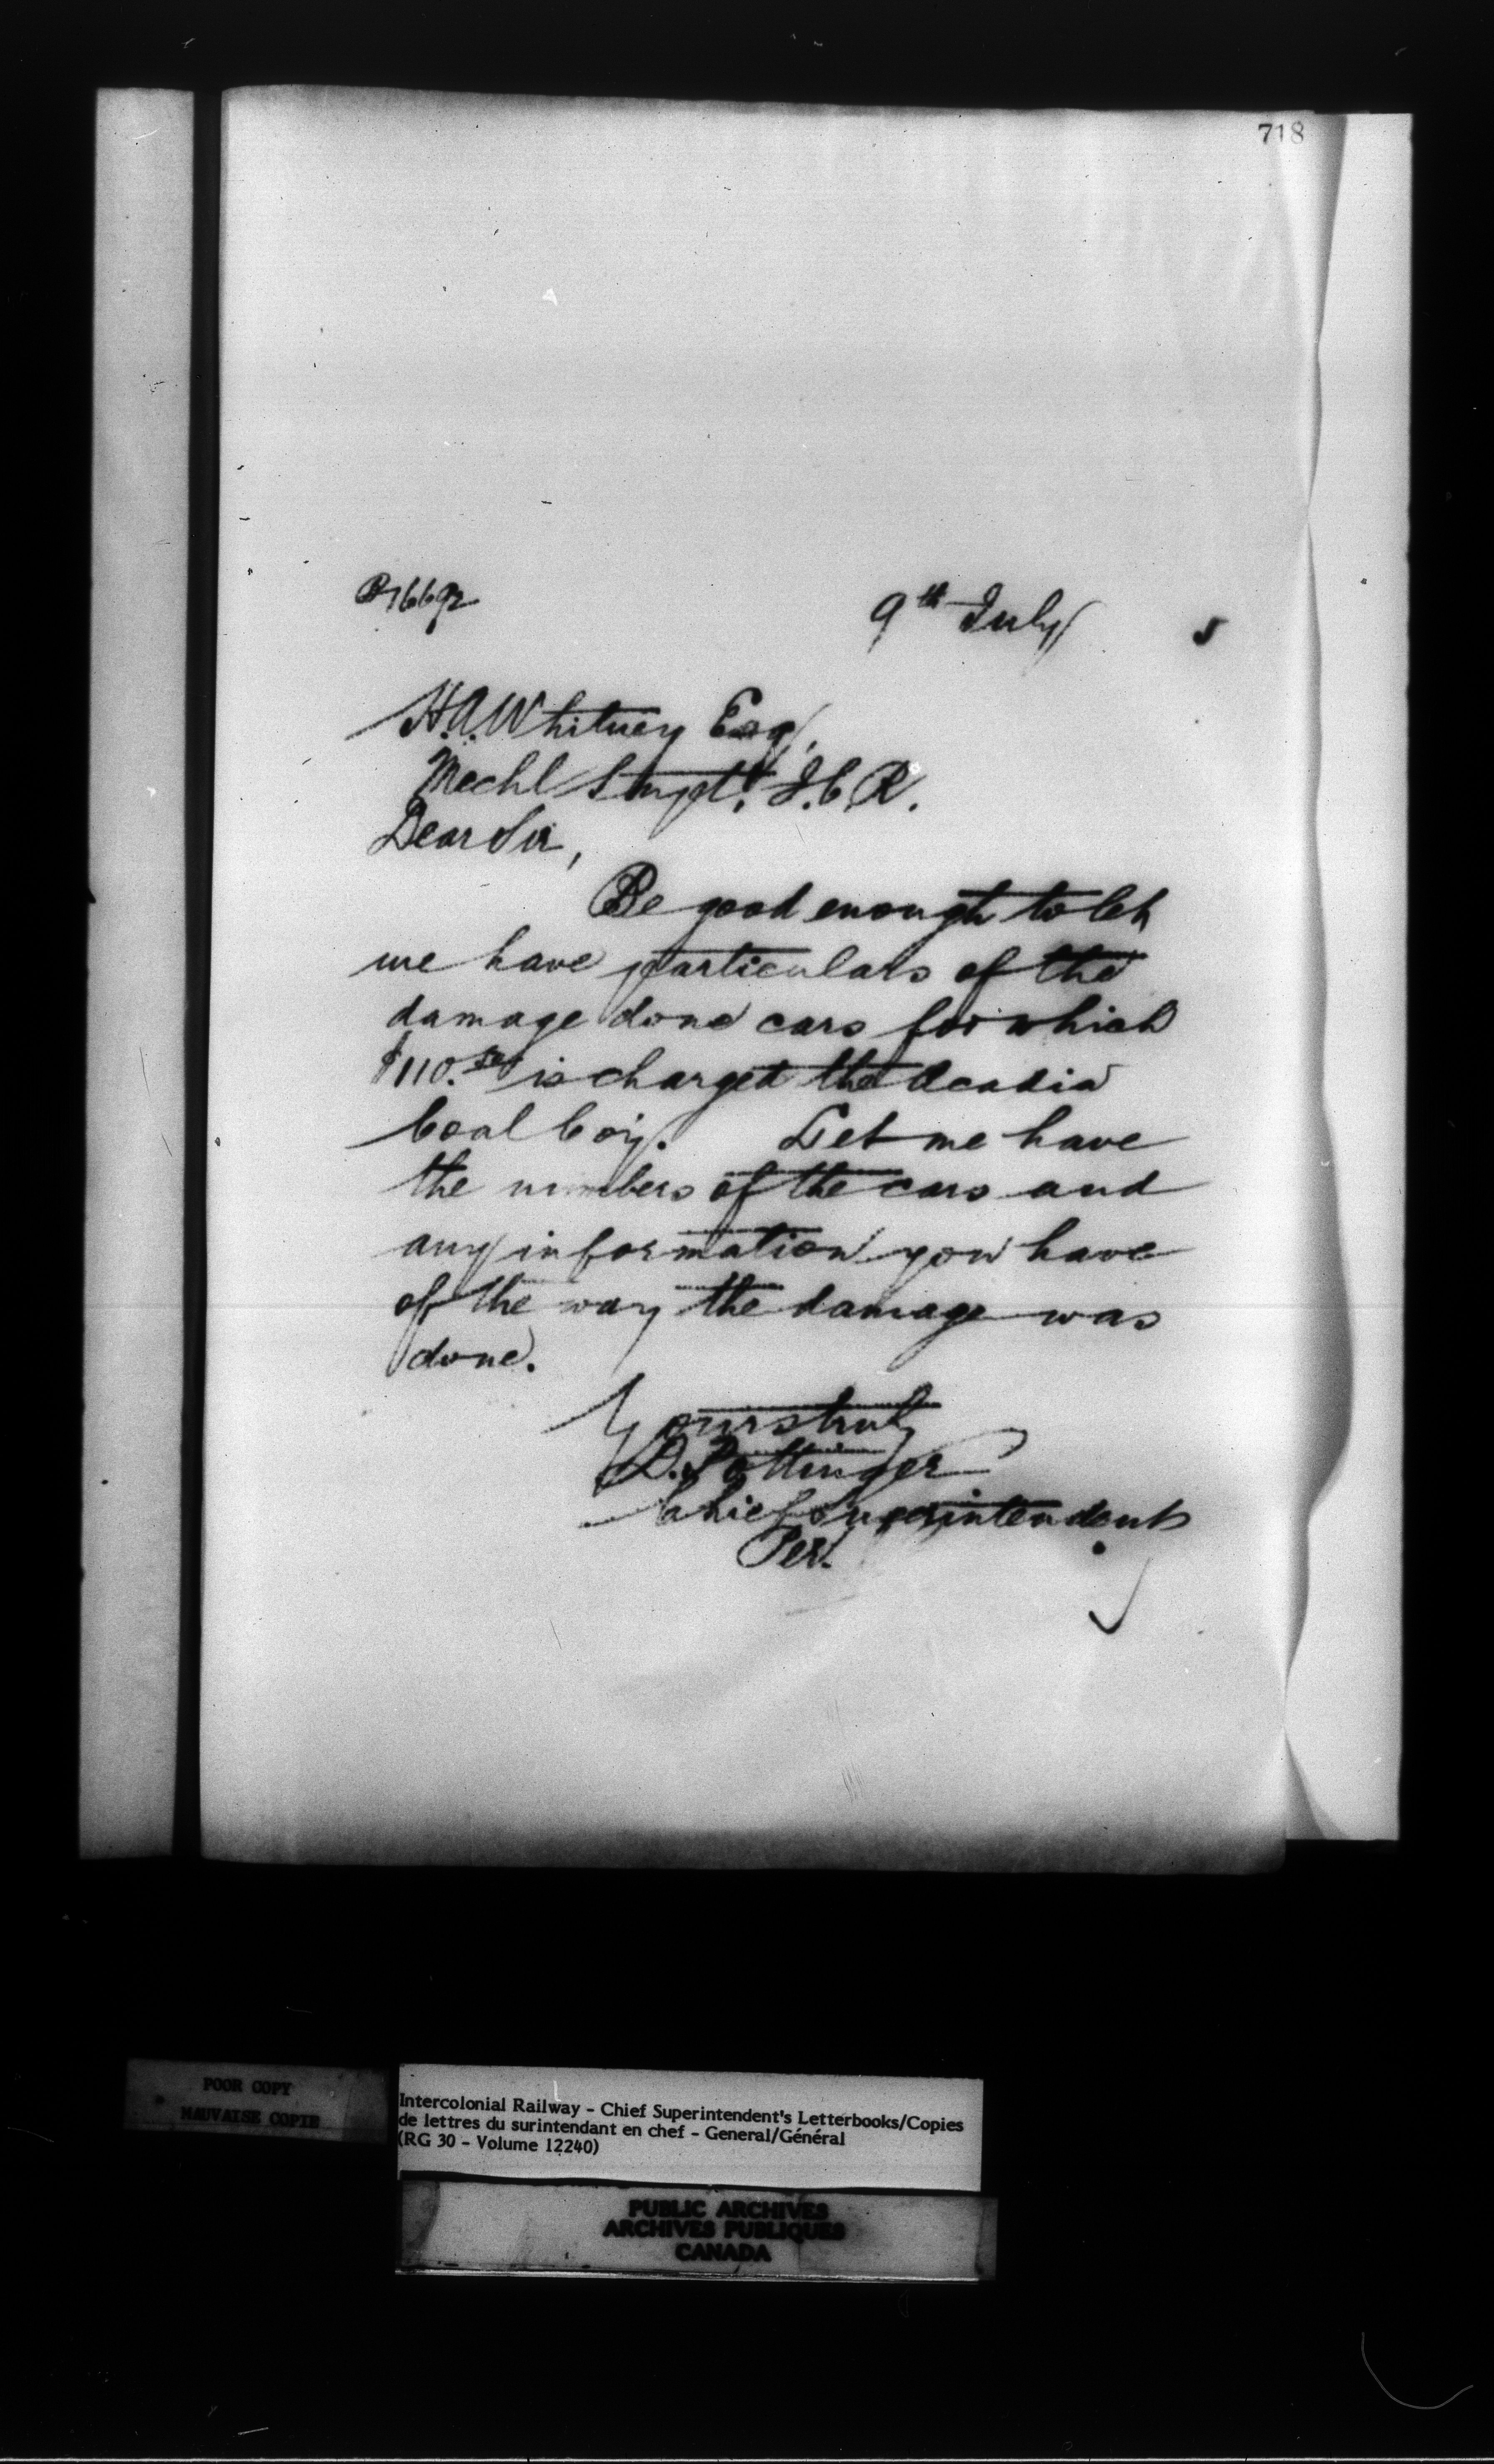 718
9th July 5
H.A. Whitney Esq.
Mechl Supt. I.C.R.
Dear Sir,
Be good enough to let
me have particulars of the
damage done cars for which
is charged the Acadia
Coal Coy. Let me have
the numbers of the cars and
any information you have
of the way the damage was
done.
Yours truly
D. Pottinger
Chief Superintendent
Per.
POOR COPY
MAUVAISE COPIE
Intercolonial Railway - Chief Superintendent's Letterbooks/Copies
de lettres du surintendant en chef - General/Général
(RG 30 - Volume 12240)
PUBLIC ARCHIVES
ARCHIVES PUBLIQUES
CANADA